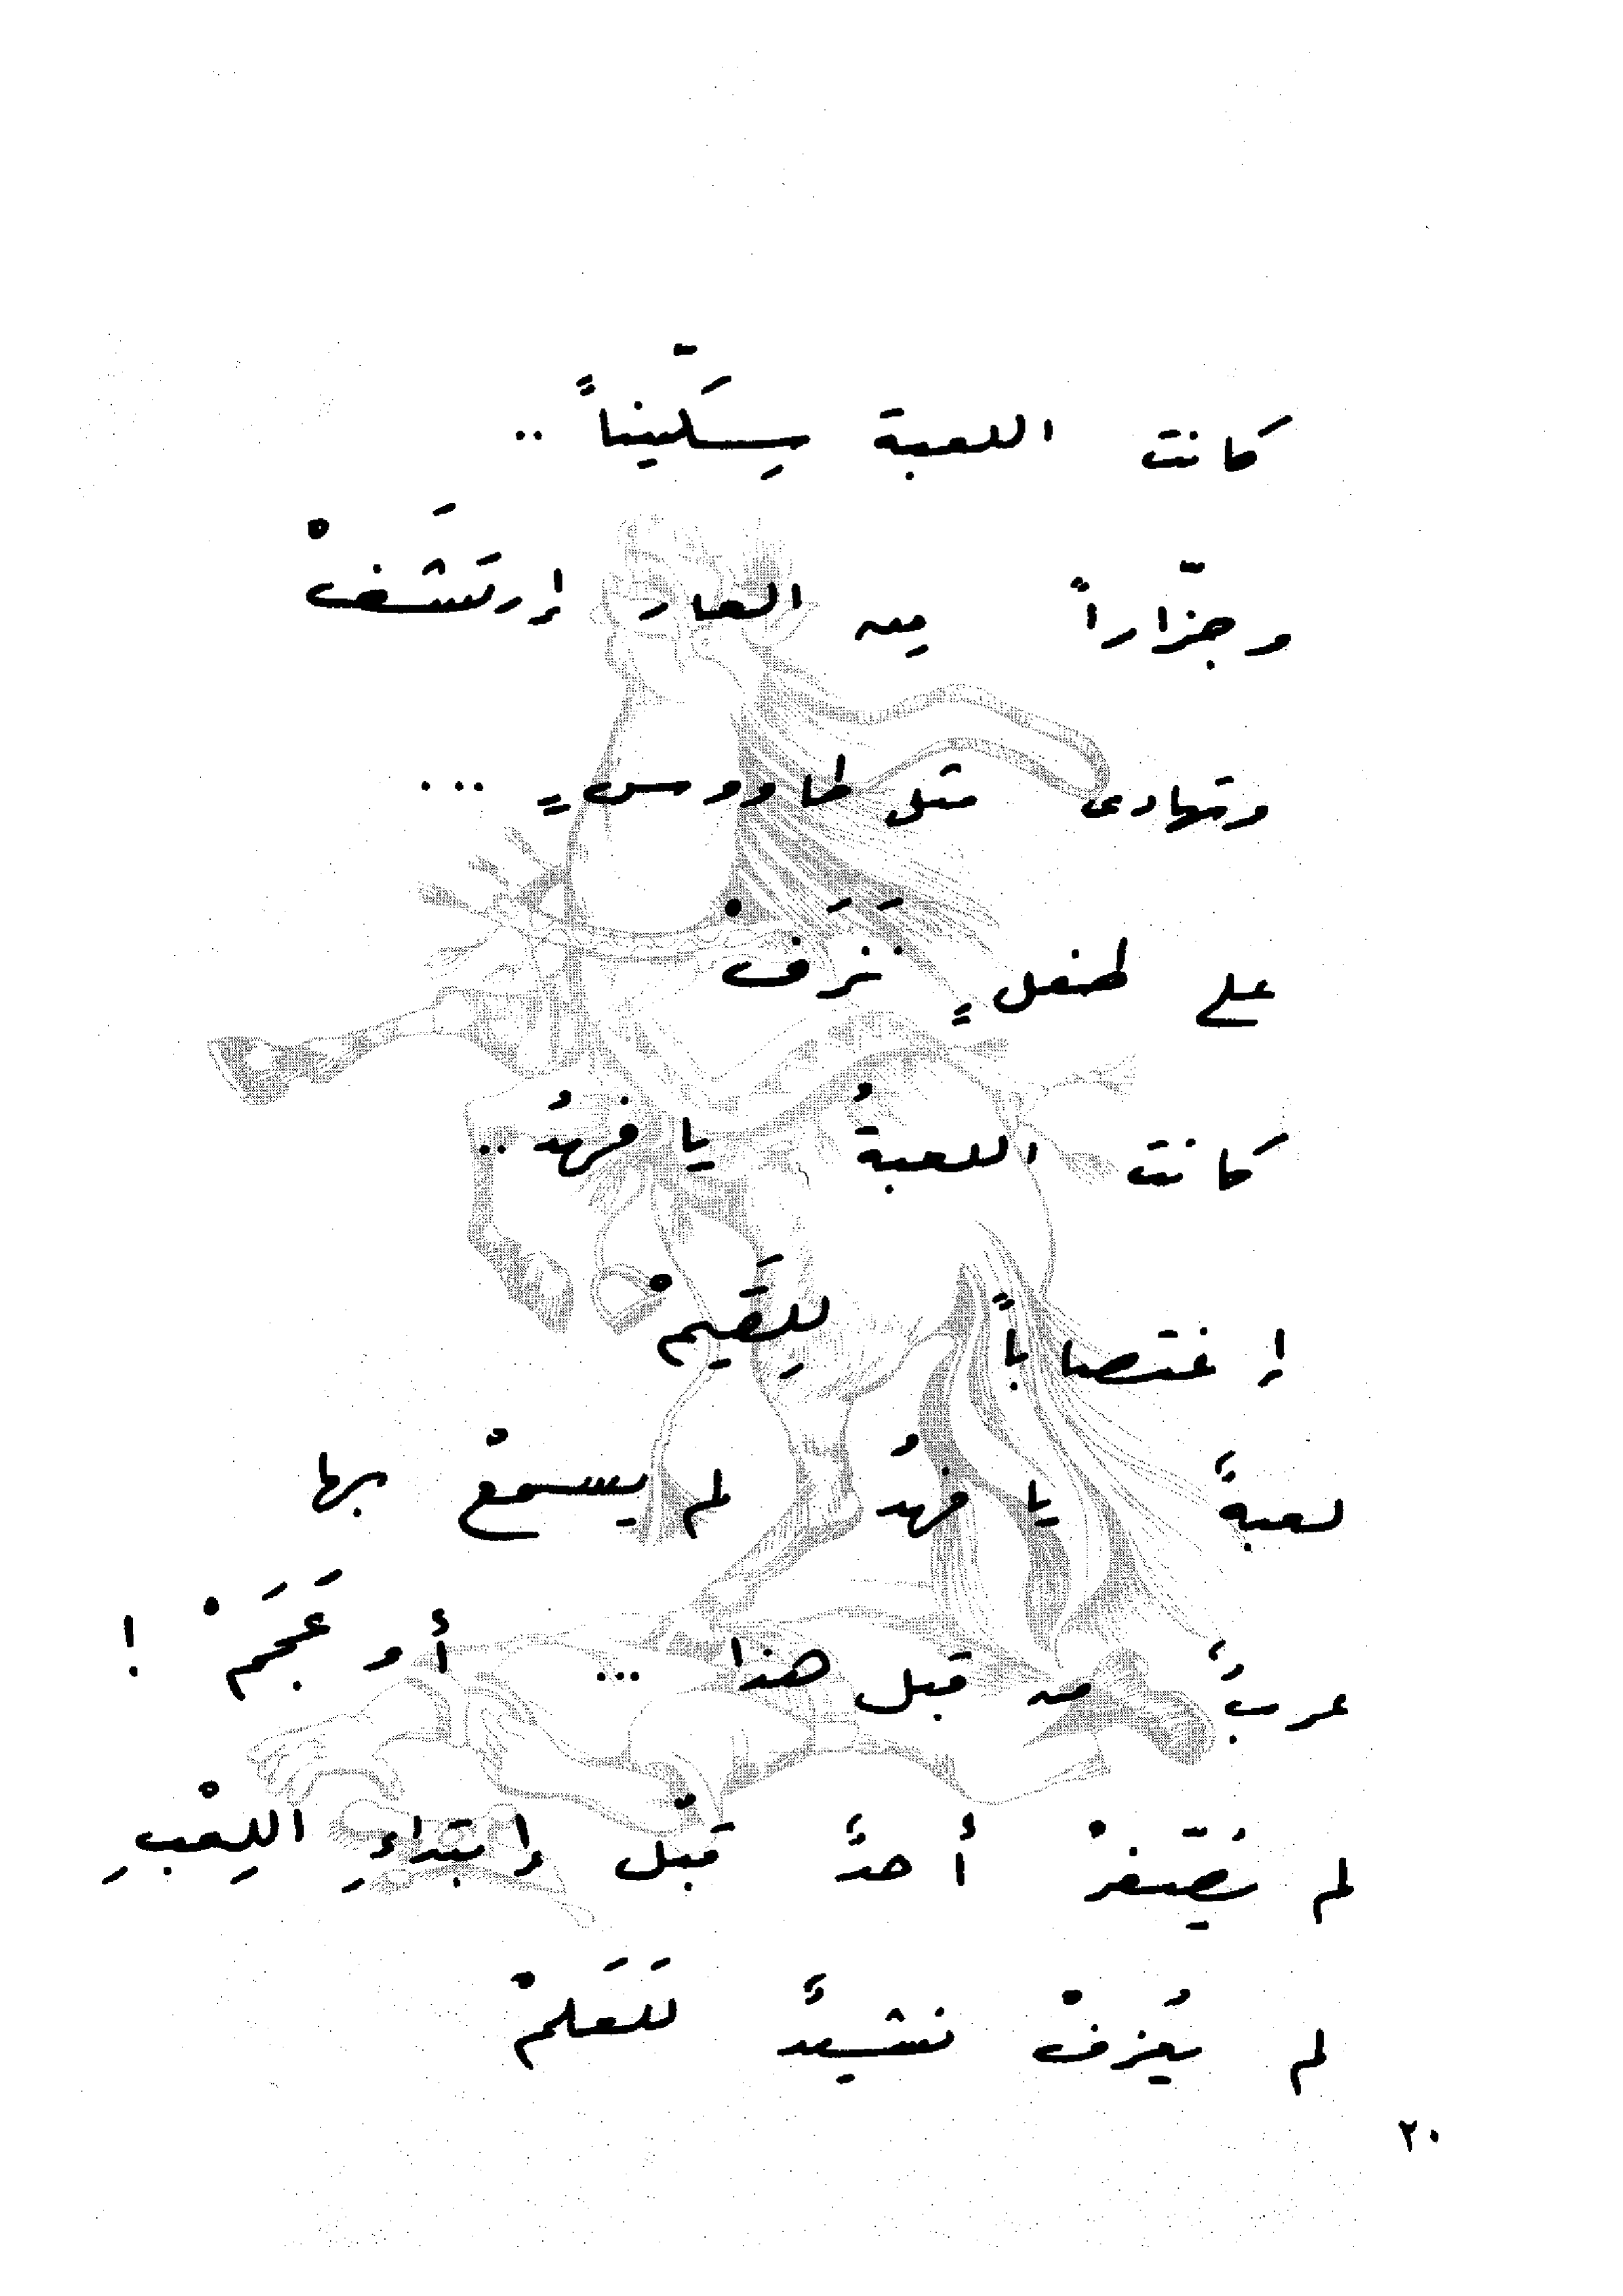 كانت اللعبة سِكَّيناً ..
وجزّاراً مِن العار إرتَشَفْ
وتهادى مثل طاووسٍ ...
على طفلٍ نَزَفْ
كانت اللعبةُ يا فهدُ ..
إغتصاباً لِلقَيَمْ
لعبةً يا فهدُ لم يسمعْ بها
عربٌ من قبل هذا ... أو عَجَمْ !
لم يُصَفِّرْ أحدٌ قبْل إبتداءِ اللِعْبِ
لم يُعزفْ نشيدٌ للعَلَمْ
٢٠